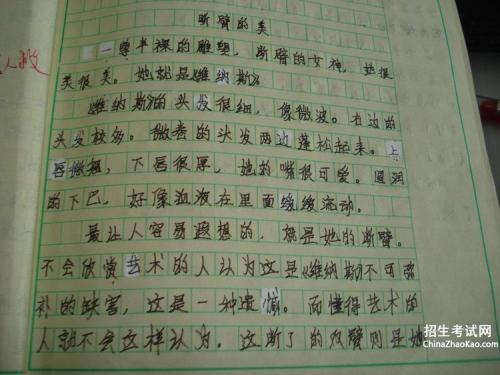 断臂的美
一尊半裸的雕塑,断臂的女神,她很
美很美。她就是《维纳斯》。
《维纳斯》的头发很细,像微波。右边的
头发较多。微卷的头发两边蓬松起来。上
唇微翘,下唇很厚,她的嘴很可爱。圆润
的下巴,好像血液在里面缓缓流动。
最让人容易遐想的,就是她的断臂。
不会欣赏艺术的人认为这是《维纳斯》不可弥
补的缺害,这是一种遗憾。而懂得艺术的
人就不会这样认为。这断了的双臂则是她
招生考试网
ChinaZhaoKao.com